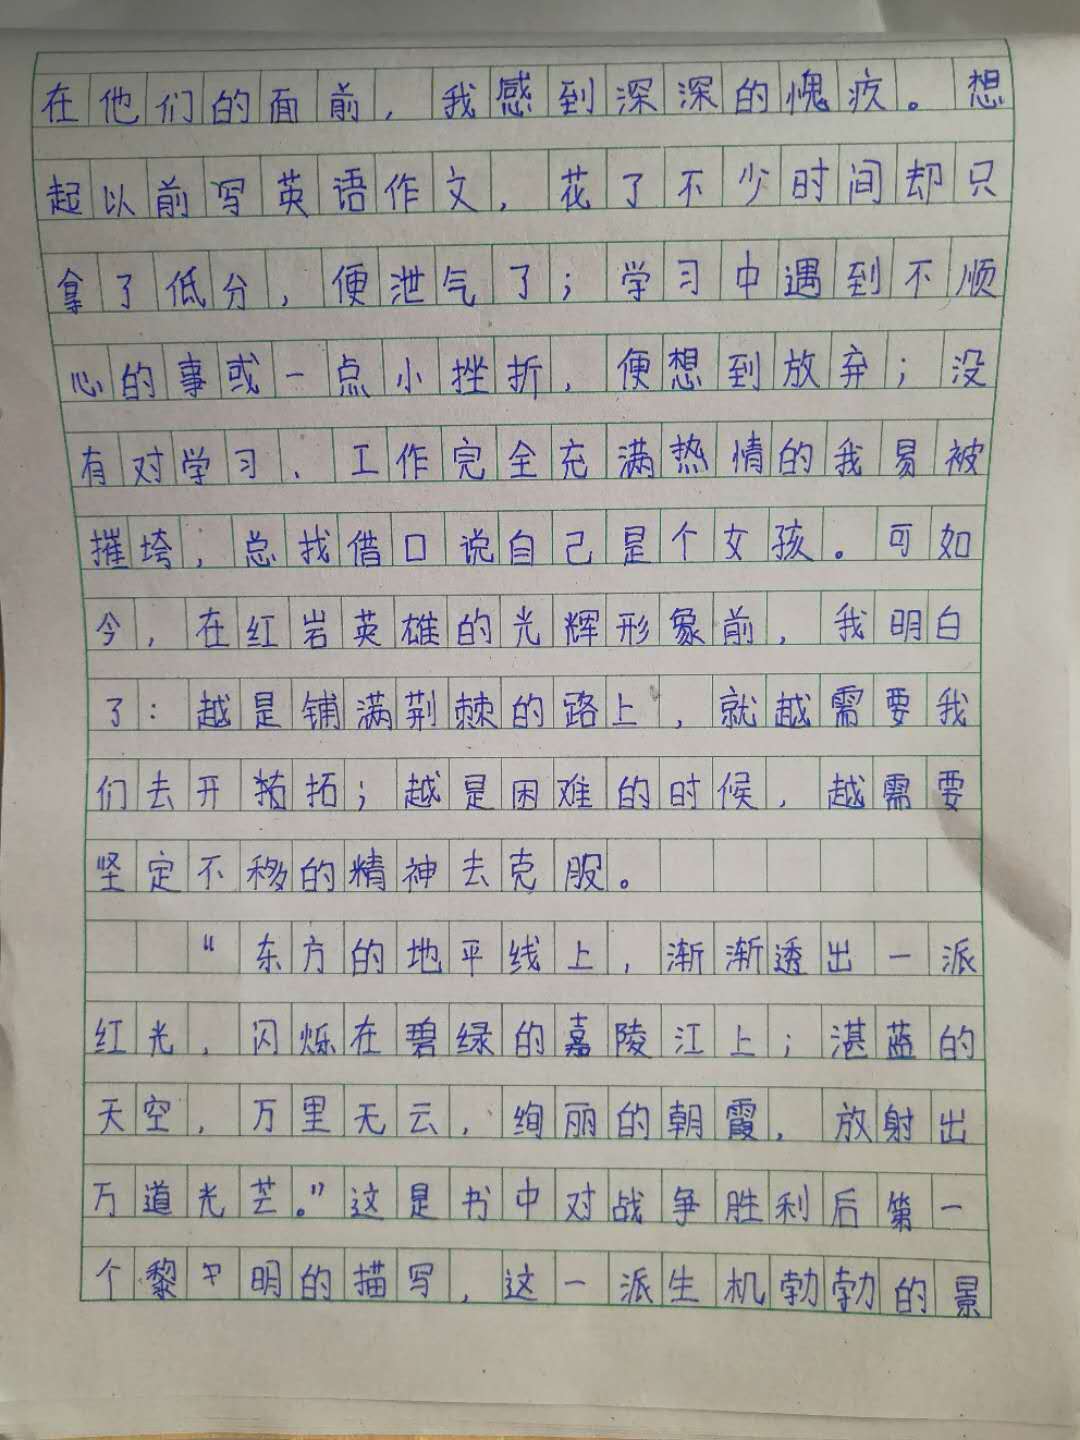 在他们的面前，我感到深深的愧疚。想
起以前写英语作文，花了不少时间却只
拿了低分，便泄气了；学习中遇到不顺
心的事或一点小挫折，便想到放弃；没
有对学习、工作完全充满热情的我易被
摧垮，总找借口说自己是个女孩。可如
今，在红岩英雄的光辉形象前，我明白
了：越是铺满荆棘的路上，就越需要我
们去开拓；越是困难的时候，越需要
坚定不移的精神去克服。
“东方的地平线上，渐渐透出一派
红光，闪烁在碧绿的嘉陵江上；湛蓝的
天空，万里无云，绚丽的朝霞，放射出
万道光芒。”这是书中对战争胜利后第一
个黎明的描写，这一派生机勃勃的景